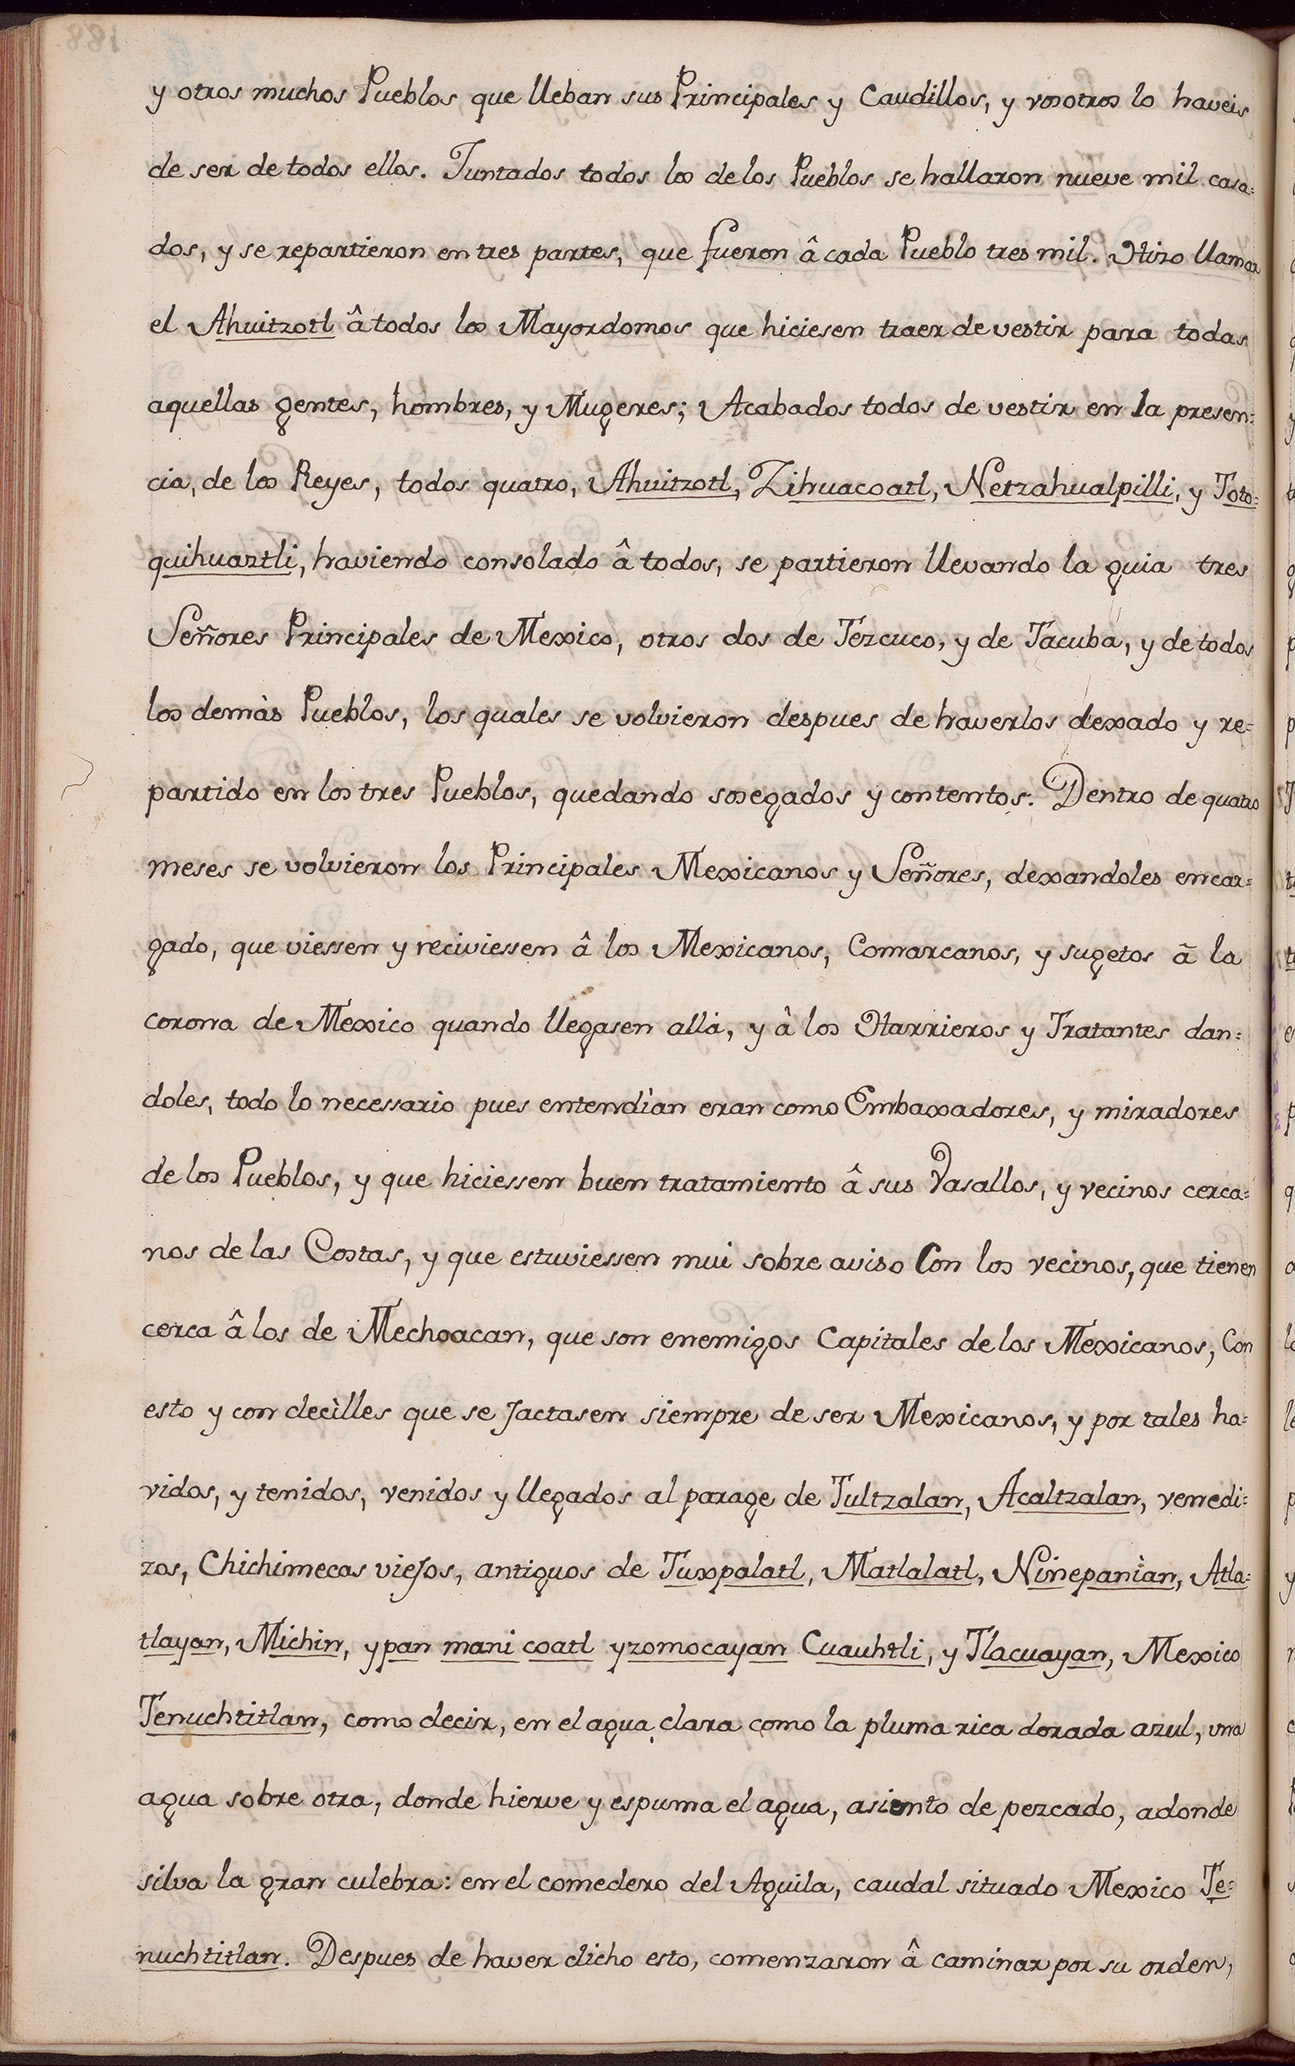 y otros muchos Pueblos que lleban sus Principales y Caudillos, y vosotros lo haveis
de ser de todos ellos. Juntados todos los de los Pueblos se hallaron nueve mil casa=
dos, y se repartieron en tres partes, que fueron â cada Pueblo tres mil. Hizo llamar
el Ahuitzotl â todos los Mayordomos que hiciesen traer de vestir para todas
aquellas gentes, hombres, y Mugeres; Acabados todos de vestir en la presen=
cia, de los Reyes, todos quatro, Ahuitzotl, Zihuacoatl, Netzahualpilli, y Toto=
quihuaztli, haviendo consolado â todos, se partieron llevando la guia tres
Señores Principales de Mexico, otros dos de Tezcuco, y de Tacuba, y de todos
los demàs Pueblos, los quales se volvieron despues de haverlos dexado y re=
partido en los tres Pueblos, quedando sosegados y contentos. Dentro de quatro
meses se volvieron los Principales Mexicanos y Señores, dexandoles encar=
gado, que viessen y reciviessen â los Mexicanos, Comarcanos, y sugetos ã la
corona de Mexico quando llegasen allà, y à los Harrieros y Tratantes dan=
doles, todo lo necessario pues entendìan eran como Embaxadores, y miradores
de los Pueblos, y que hiciessen buen tratamiento â sus Vasallos, y vecinos cerca=
nos de las Costas, y que estuviessen mui sobre aviso Con los vecinos, que tienen
cerca â los de Mechoacan, que son enemigos Capitales de los Mexicanos, Con
esto y con decìlles que se Jactasen siempre de ser Mexicanos, y por tales ha=
vidos, y tenidos, venidos y llegados al parage de Tultzalan, Acaltzalan, venedi=
zos, Chichimecas viejos, antiguos de Tuxpalatl, Matlalatl, Ninepanìan, Atla=
tlayan, Michin, ypan mani coatl yzomocayan Cuauhtli, y Tlacuayan, Mexico
Tenuchtitlan, como decir, en el agua clara como la pluma rica dorada azul, una
agua sobre otra, donde hierve y espuma el agua, asiento de pezcado, adonde
silva la gran culebra: en el comedero del Aguila, caudal situado Mexico Te=
nuchtitlan. Despues de haver dicho esto, comenzaron â caminar por su orden,